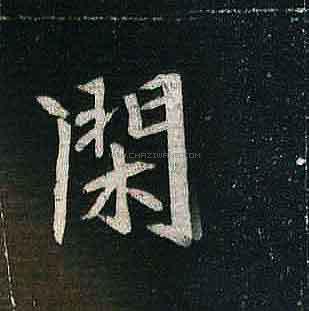 閑
WWW.CHAZIWANG.COM